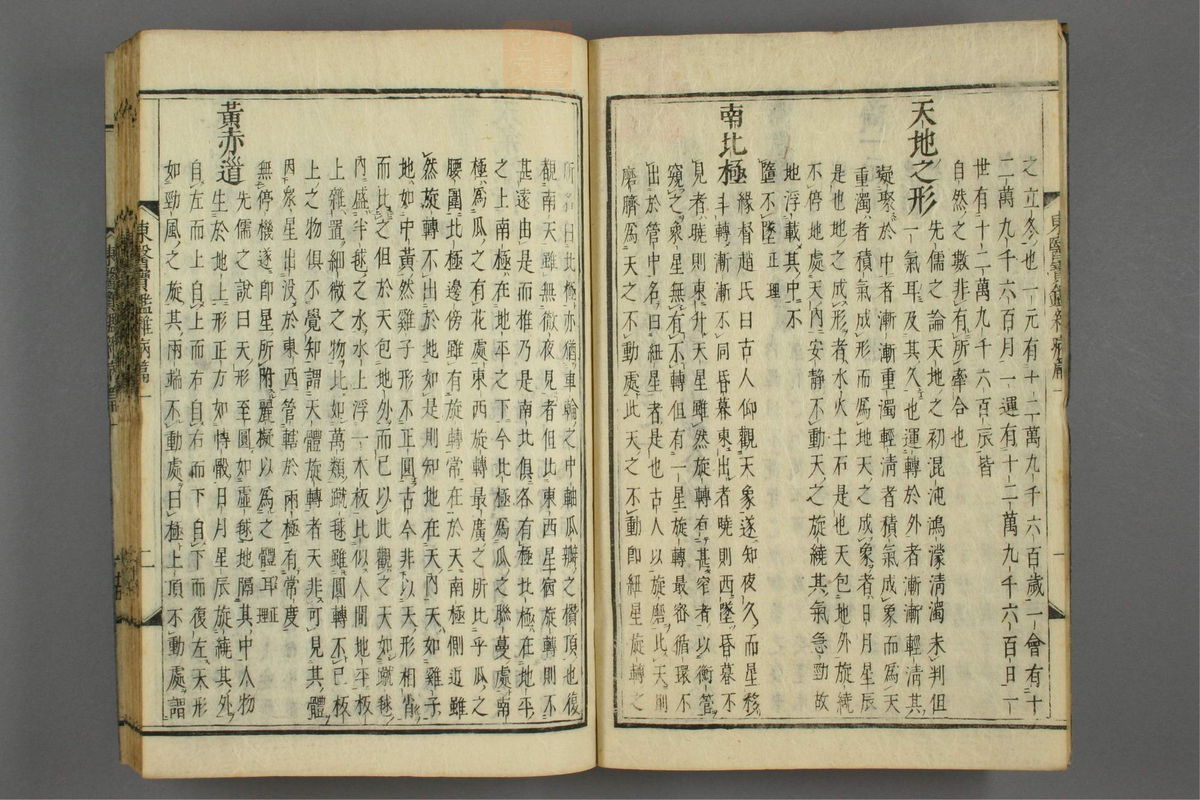 之立冬也一元有十二萬九千六百歲一會有十
二萬九千六百月一運有十二萬九千六百日一
世有十二萬九千六百辰皆
自然之數非有所牽合也
天地之形
先儒之論天地之初混沌鴻濛清濁未判但
一氣耳及其久也運轉於外者漸漸輕清其
凝聚於中者漸漸重濁輕清者積氣成象而爲天
重濁者積氣成形而爲地天之成象者日月星辰
是也地之成形者水火土石是也天包地外旋繞
不停地處天內安靜不動天之旋繞其氣急勁故
地浮載其中不
墮不墜正理
南北極
緣督趙氏曰古人仰觀天象遂知夜久而星移
斗轉漸漸不同昏暮東出者曉則西墜昏暮不
見者曉則東升天星雖然旋轉有甚窄者以衡管
窺之衆星無有不轉但有一星旋轉最密循環不
出於管中名曰紐星者是也古人以旋磨比天則
磨臍爲天之不動處此天之不動卽紐星旋轉之
東醫寶鑑雜病篇一
一
所名曰北極亦猶車輪之中軸瓜瓣之攢頂也復
觀南天雖無徹夜見者但比東西星宿旋轉則不
甚遠由是而推乃是南北俱各有極北極在地平
之上南極在地平之下今北極爲瓜之聯蔓處南
極爲瓜之有花處東西旋轉最廣之所比乎瓜之
腰圍北極邊傍雖有旋轉常在於天南極側近雖
然旋轉不出於地如是則知地在天內天如雞子
地如中黃然雞子形不正圓古今非以天形相肖
而比之但於天包地外而已以此觀之天如蹴毬
內盛半毬之水水上浮一木板比似人間地平板
上雜置細微之物比如萬類蹴毬雖圓轉不已板
上之物俱不覺知謂天體旋轉者天非可見其體
因衆星出沒於東西管轄於兩極有常度
無停機遂卽星所附麗擬以爲之體耳正理
黃赤道
先儒之說曰天形至圓如虛毬地隔其中人物
生於地上形正方如博骰日月星辰旋繞其外
自左而上自上而右自右而下自下而復左天形
如勁風之旋其兩端不動處曰極上頂不動處謂
東醫寶鑑雜病篇一
二